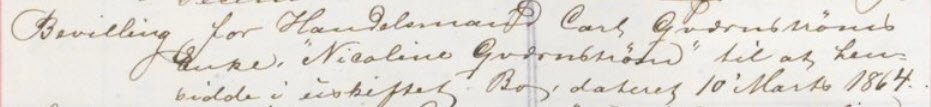 Bevilling for Handelsmand Carl Qvörnströms
Enke, "Nicoline Qvörnström" til at hen-
sidde i uskiftet Bo, dateret 10' Marts 1864.